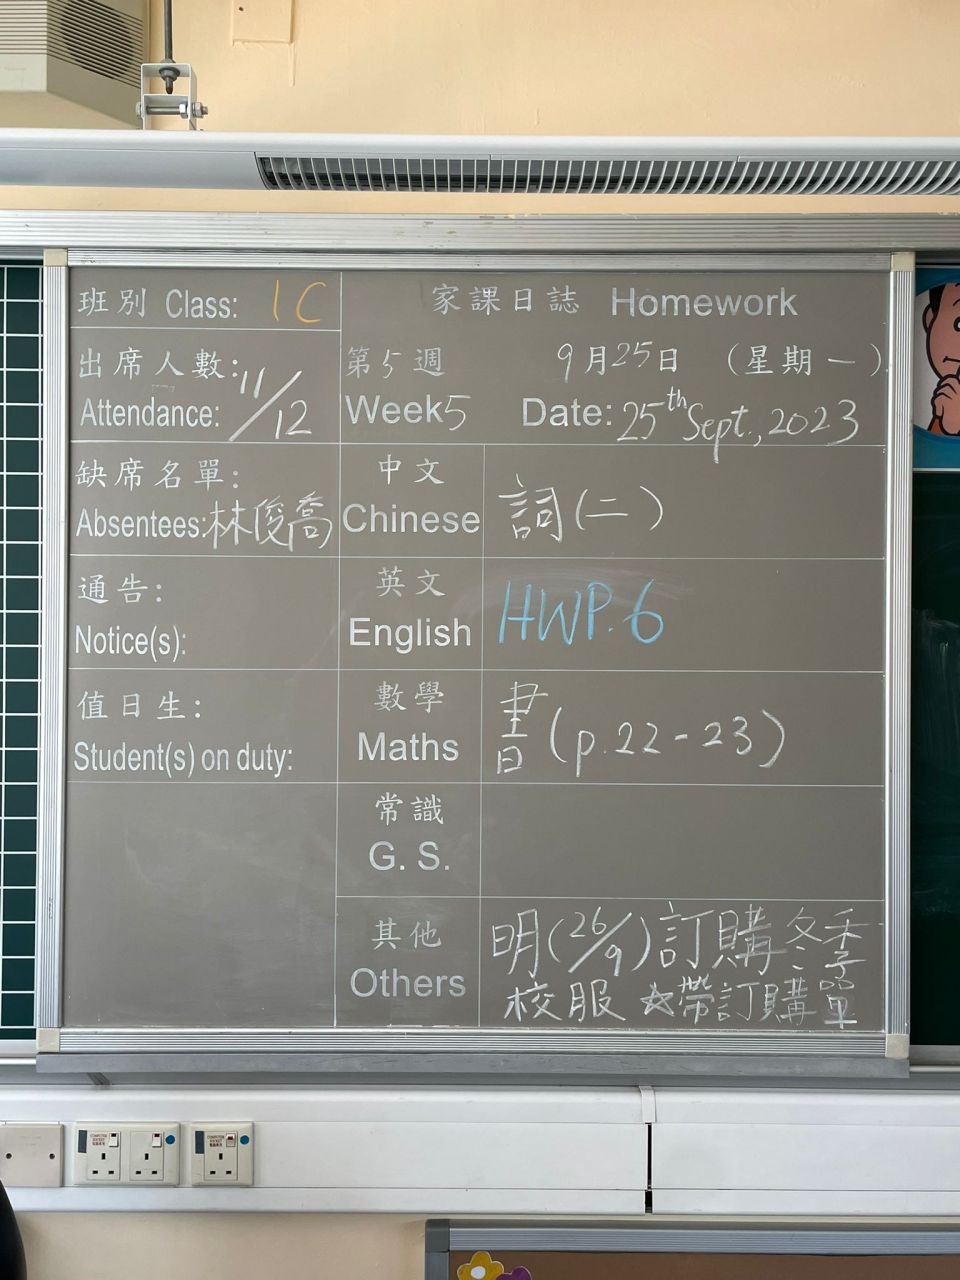 班別 Class: 1C
家課日誌 Homework
出席人數:
Attendance: 11/12
第5週 9月25日 (星期一)
Week5 Date: 25th Sept., 2023
缺席名單:
Absentees: 林俊喬
中文
Chinese
詞(二)
通告:
Notice(s):
英文
English
HWP.6
值日生:
Student(s) on duty:
數學
Maths
書(p.22-23)
常識
G. S.
其他
Others
明(26/9)訂購冬季
校服 ☆帶訂購單